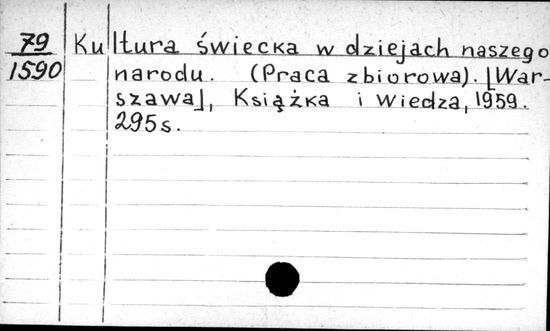 79 Kultura świecka w dziejach naszego
1590 narodu. (Praca zbiorowa). [War-
szawa], Książka i Wiedza, 1959.
295 s.